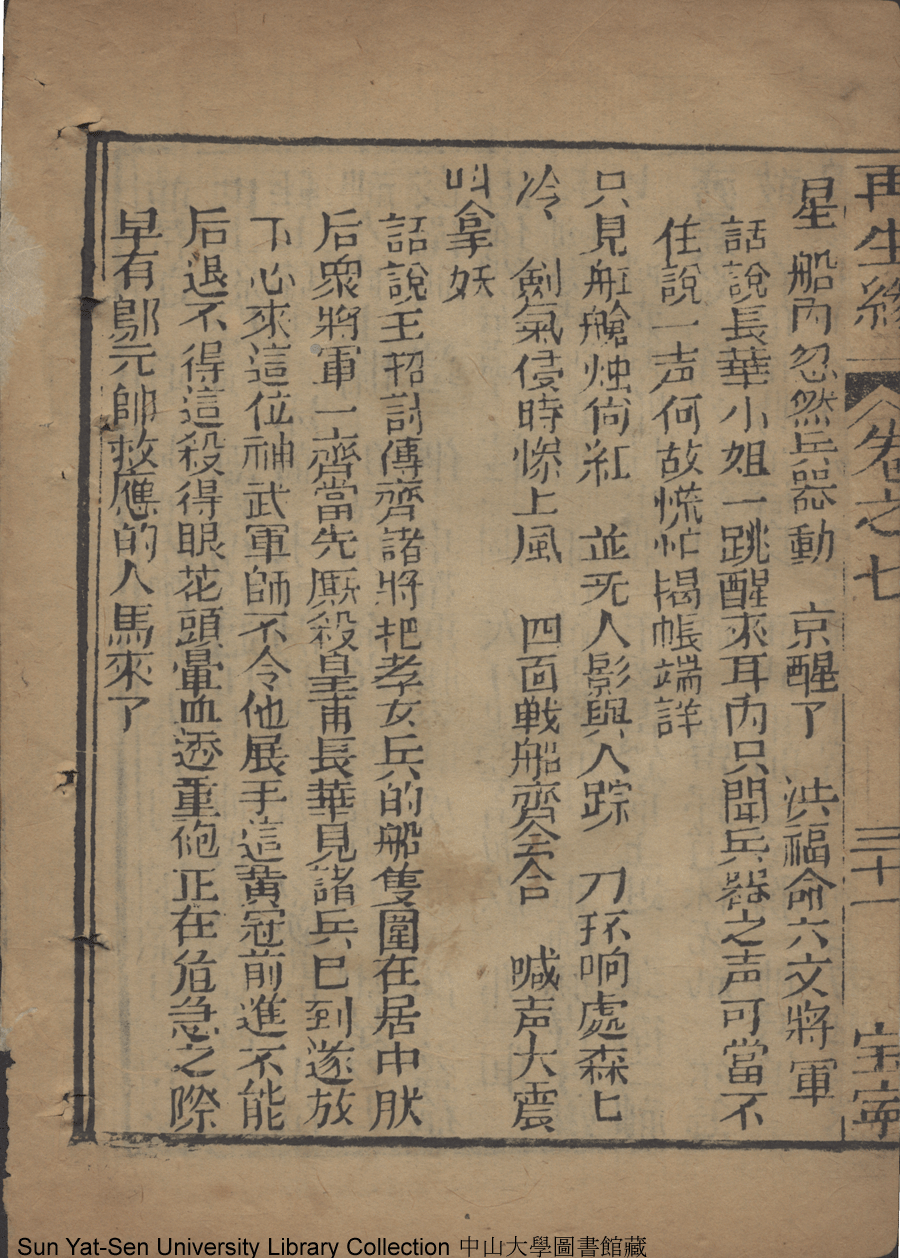 再生緣 卷之七 三十一 宝寧
星 船內忽然兵器動 京醒了 洪福命六文將軍
話說長華小姐一跳醒來耳內只聞兵器之声可當不
住說一声何故慌忙揭帳端詳
只見舡艙烛尙紅 並旡人影與人踪 刀环响處森匕
冷 劍氣侵時惨上風 四面戰船齊全合 喊声大震
叫拿妖
話說王招討傳齊諸將把孝女兵的船隻圍在居中肰
后衆將軍一齊當先厮殺皇甫長華見諸兵已到遂放
下心來這位神武軍師不令他展手這黃冠前進不能
后退不得這殺得眼花頭暈血透重袍正在危急之際
早有鄔元帥救應的人馬來了
Sun Yat-Sen University Library Collection 中山大學圖書館藏